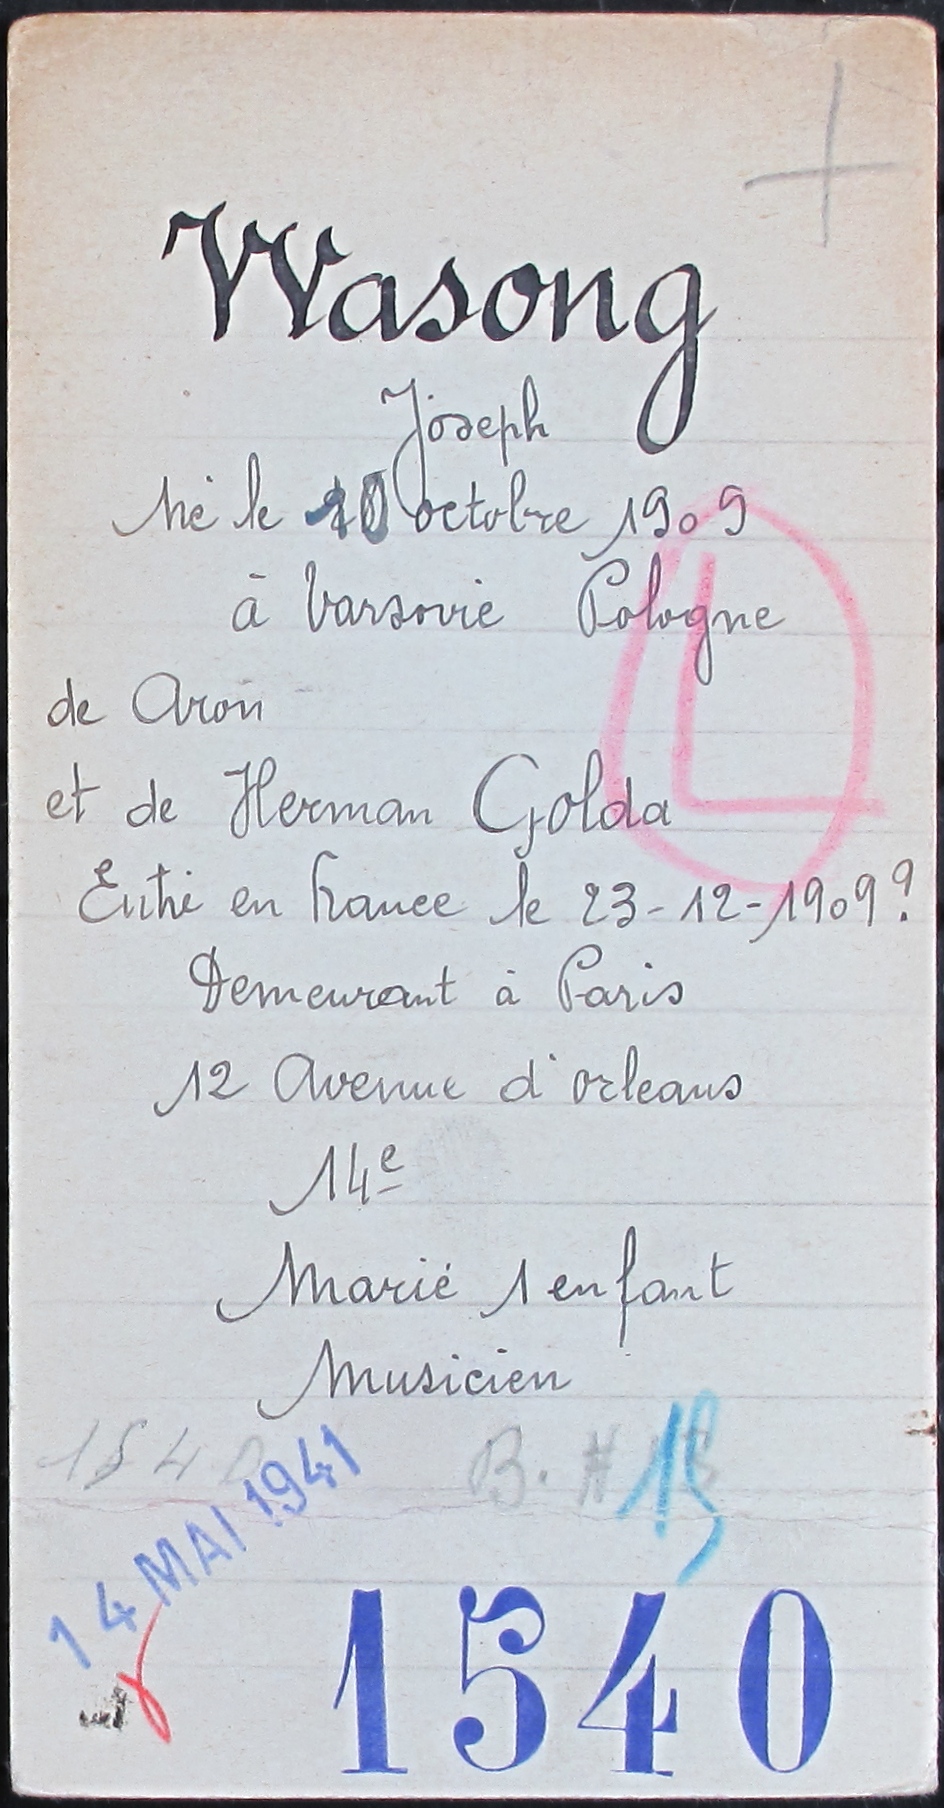 Wasong
Joseph
Né le 10 octobre 1909
à Varsovie Pologne
L
de Aron
et de Herman Golda
Entré en France le 23-12-1909?
Demeurant à Paris
12 Avenue d'orleans
14e
Marié 1 enfant
Musicien
1540
B.
14 MAI 1941
1540